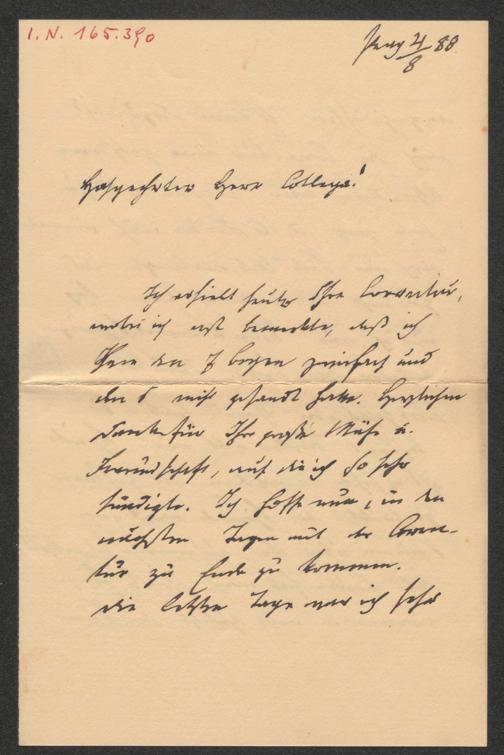 I.N. 165.390
Prag 4/8 88
Hochgeehrter Herr College!
Ich erhielt heute Ihre Correctur,
wobei ich erst bemerkte, daß ich
Ihnen den 7 Bogen zweifach und
den 6 nicht gesandt hatte. Herzlichen
Dank für Ihre große Mühe u.
Freundschaft, auf die ich so sehr
sündigte. Ich hoffe nun, in den
nächsten Tagen mit der Correc-
tur zu Ende zu kommen.
Die letzten Tage war ich sehr